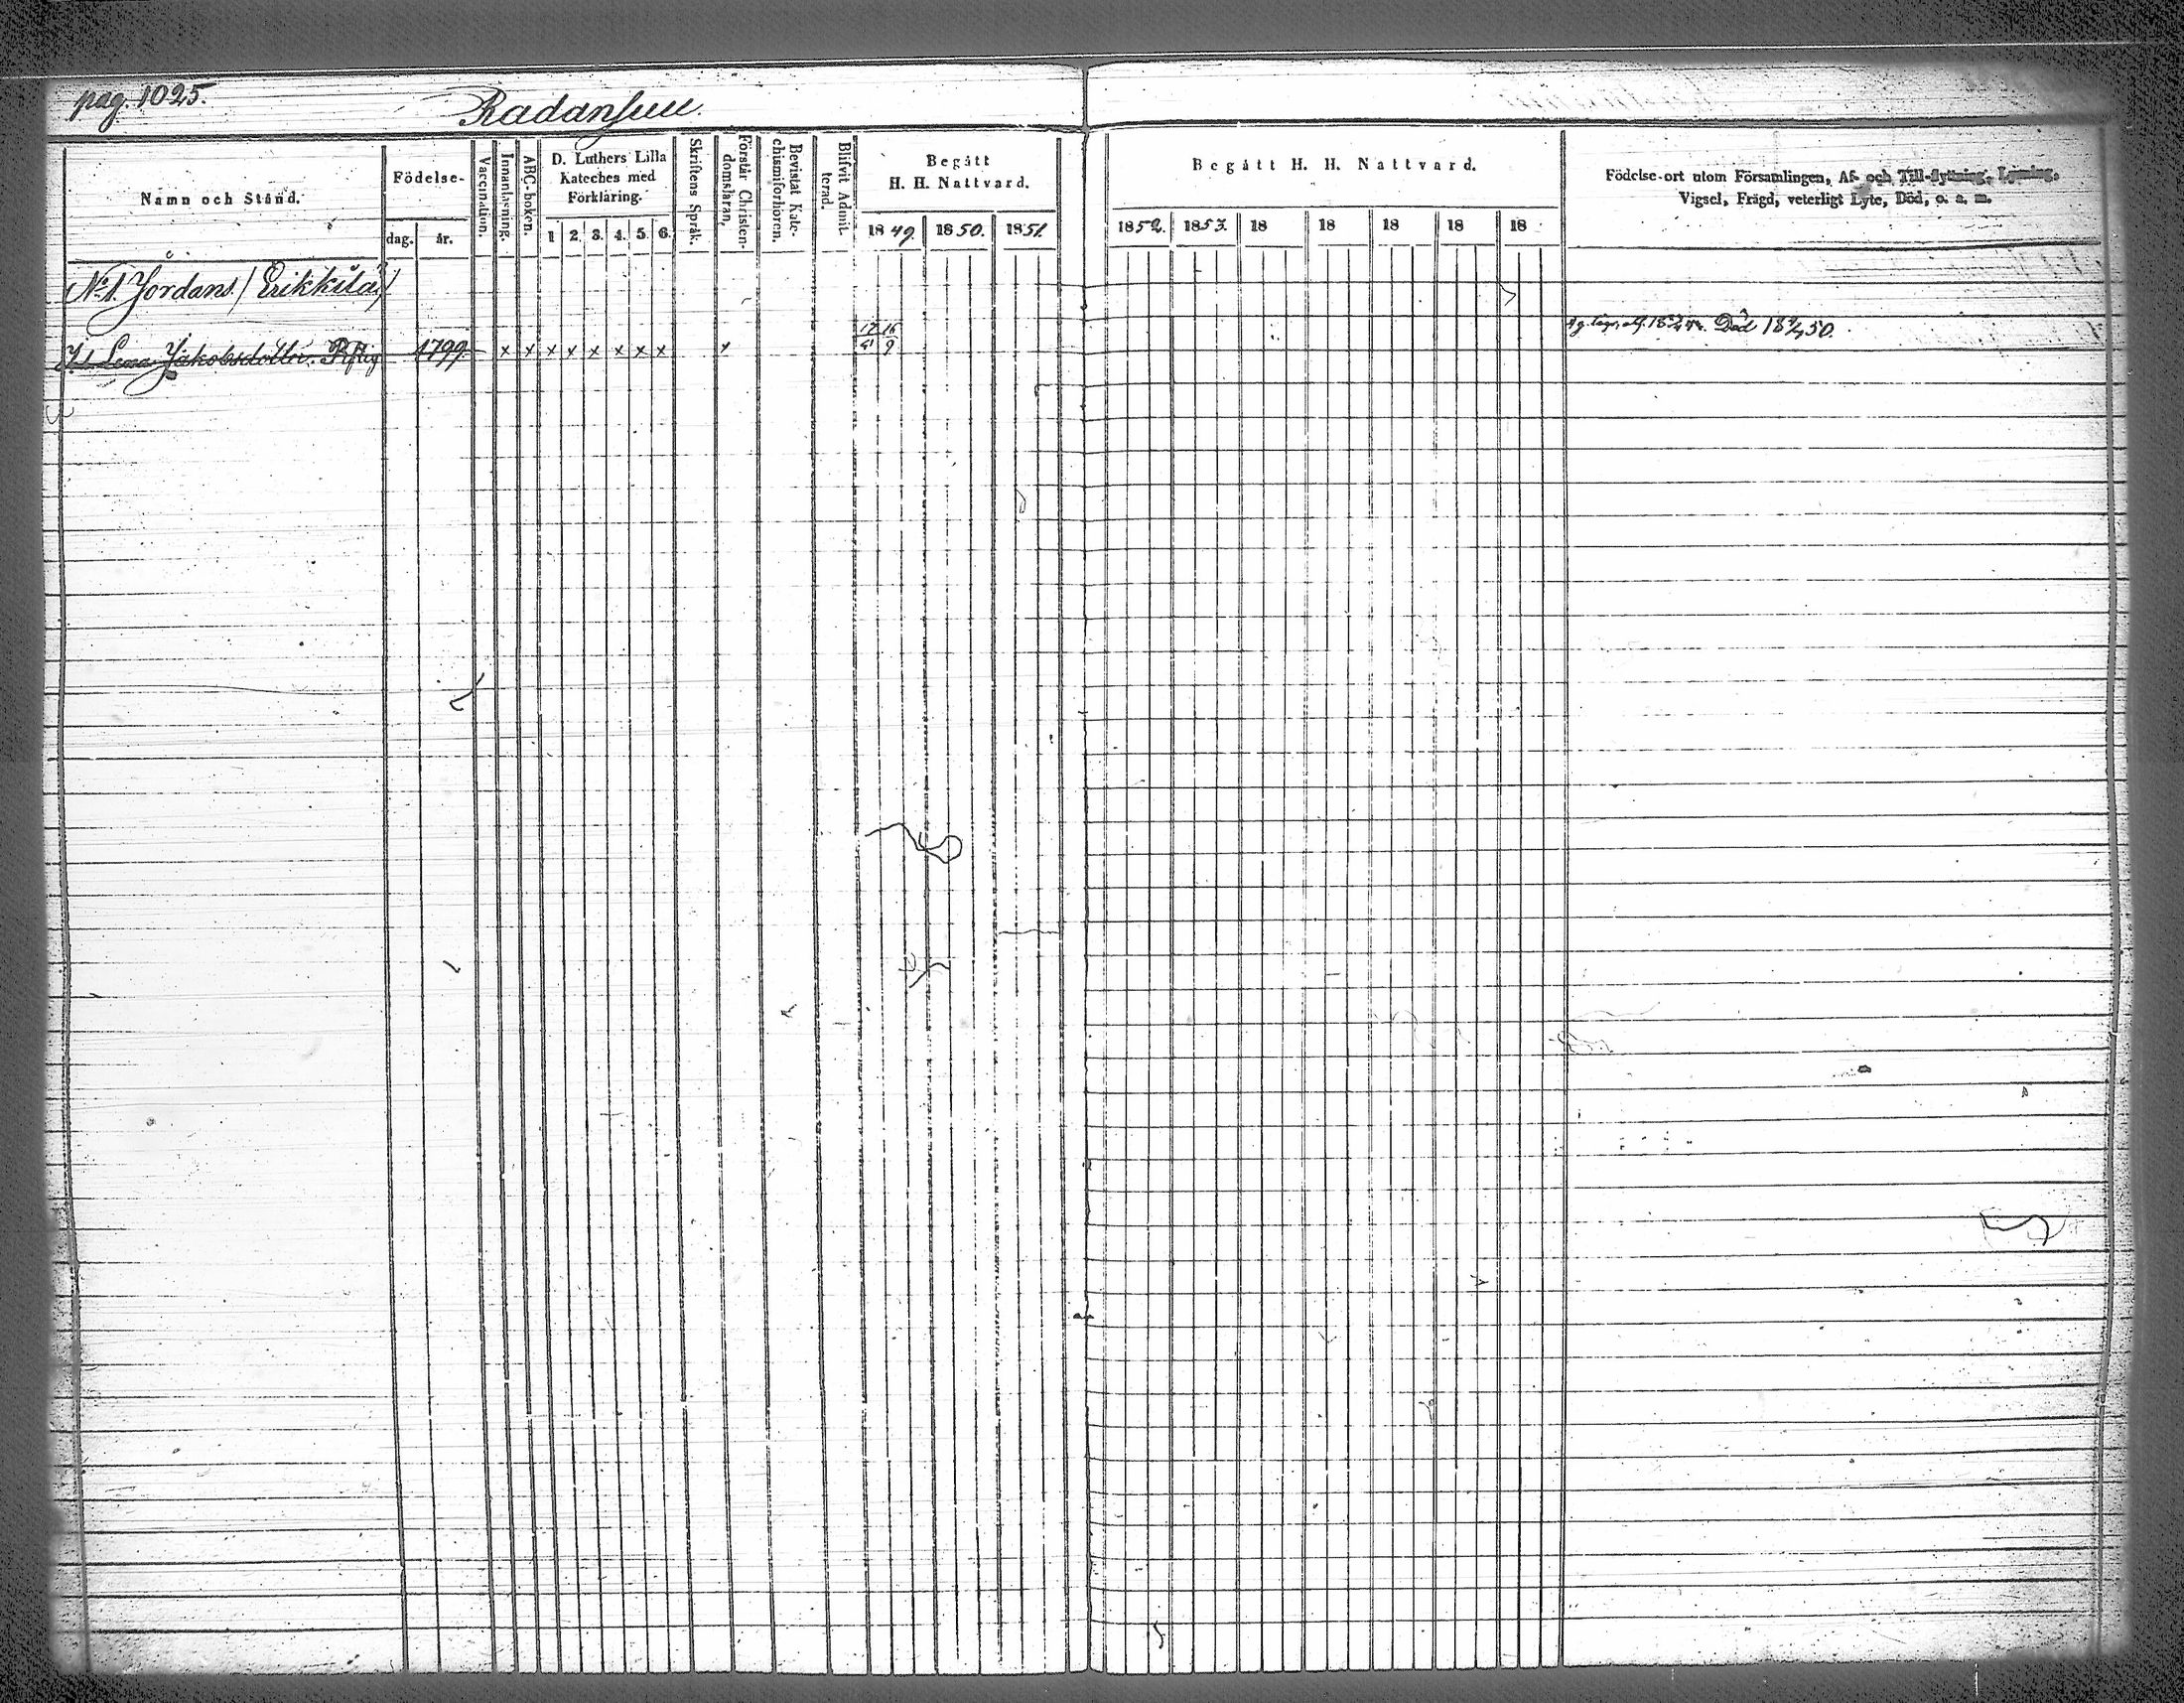 pag. 1025.
Radansuu.
Namn och Stånd.
Födelse-
dag.
år.
Vaccination.
Innanläsning.
ABC-boken.
D. Luthers Lilla
Kateches med
Förklaring.
1 2. 3. 4. 5. 6.
Skriftens Språk.
Förstår Christen-
domsläran.
Bevistat Kate-
chismiförhören.
Blifvit Admit-
terad.
Begått
H. H. Nattvard.
1849. 1850. 1851.
Begått H. H. Nattvard.
1852. 1853. 18 18 18 18 18
Födelse-ort utom Församlingen, Af- och Till-flyttning, Lysning,
Vigsel, Frägd, veterligt Lyte, Död, o. s. m.
No 1. Jordans / Erikkilä /
Lena Jakobsdotter 1799 x x x x x x x x x
17 16
9
Död 50.